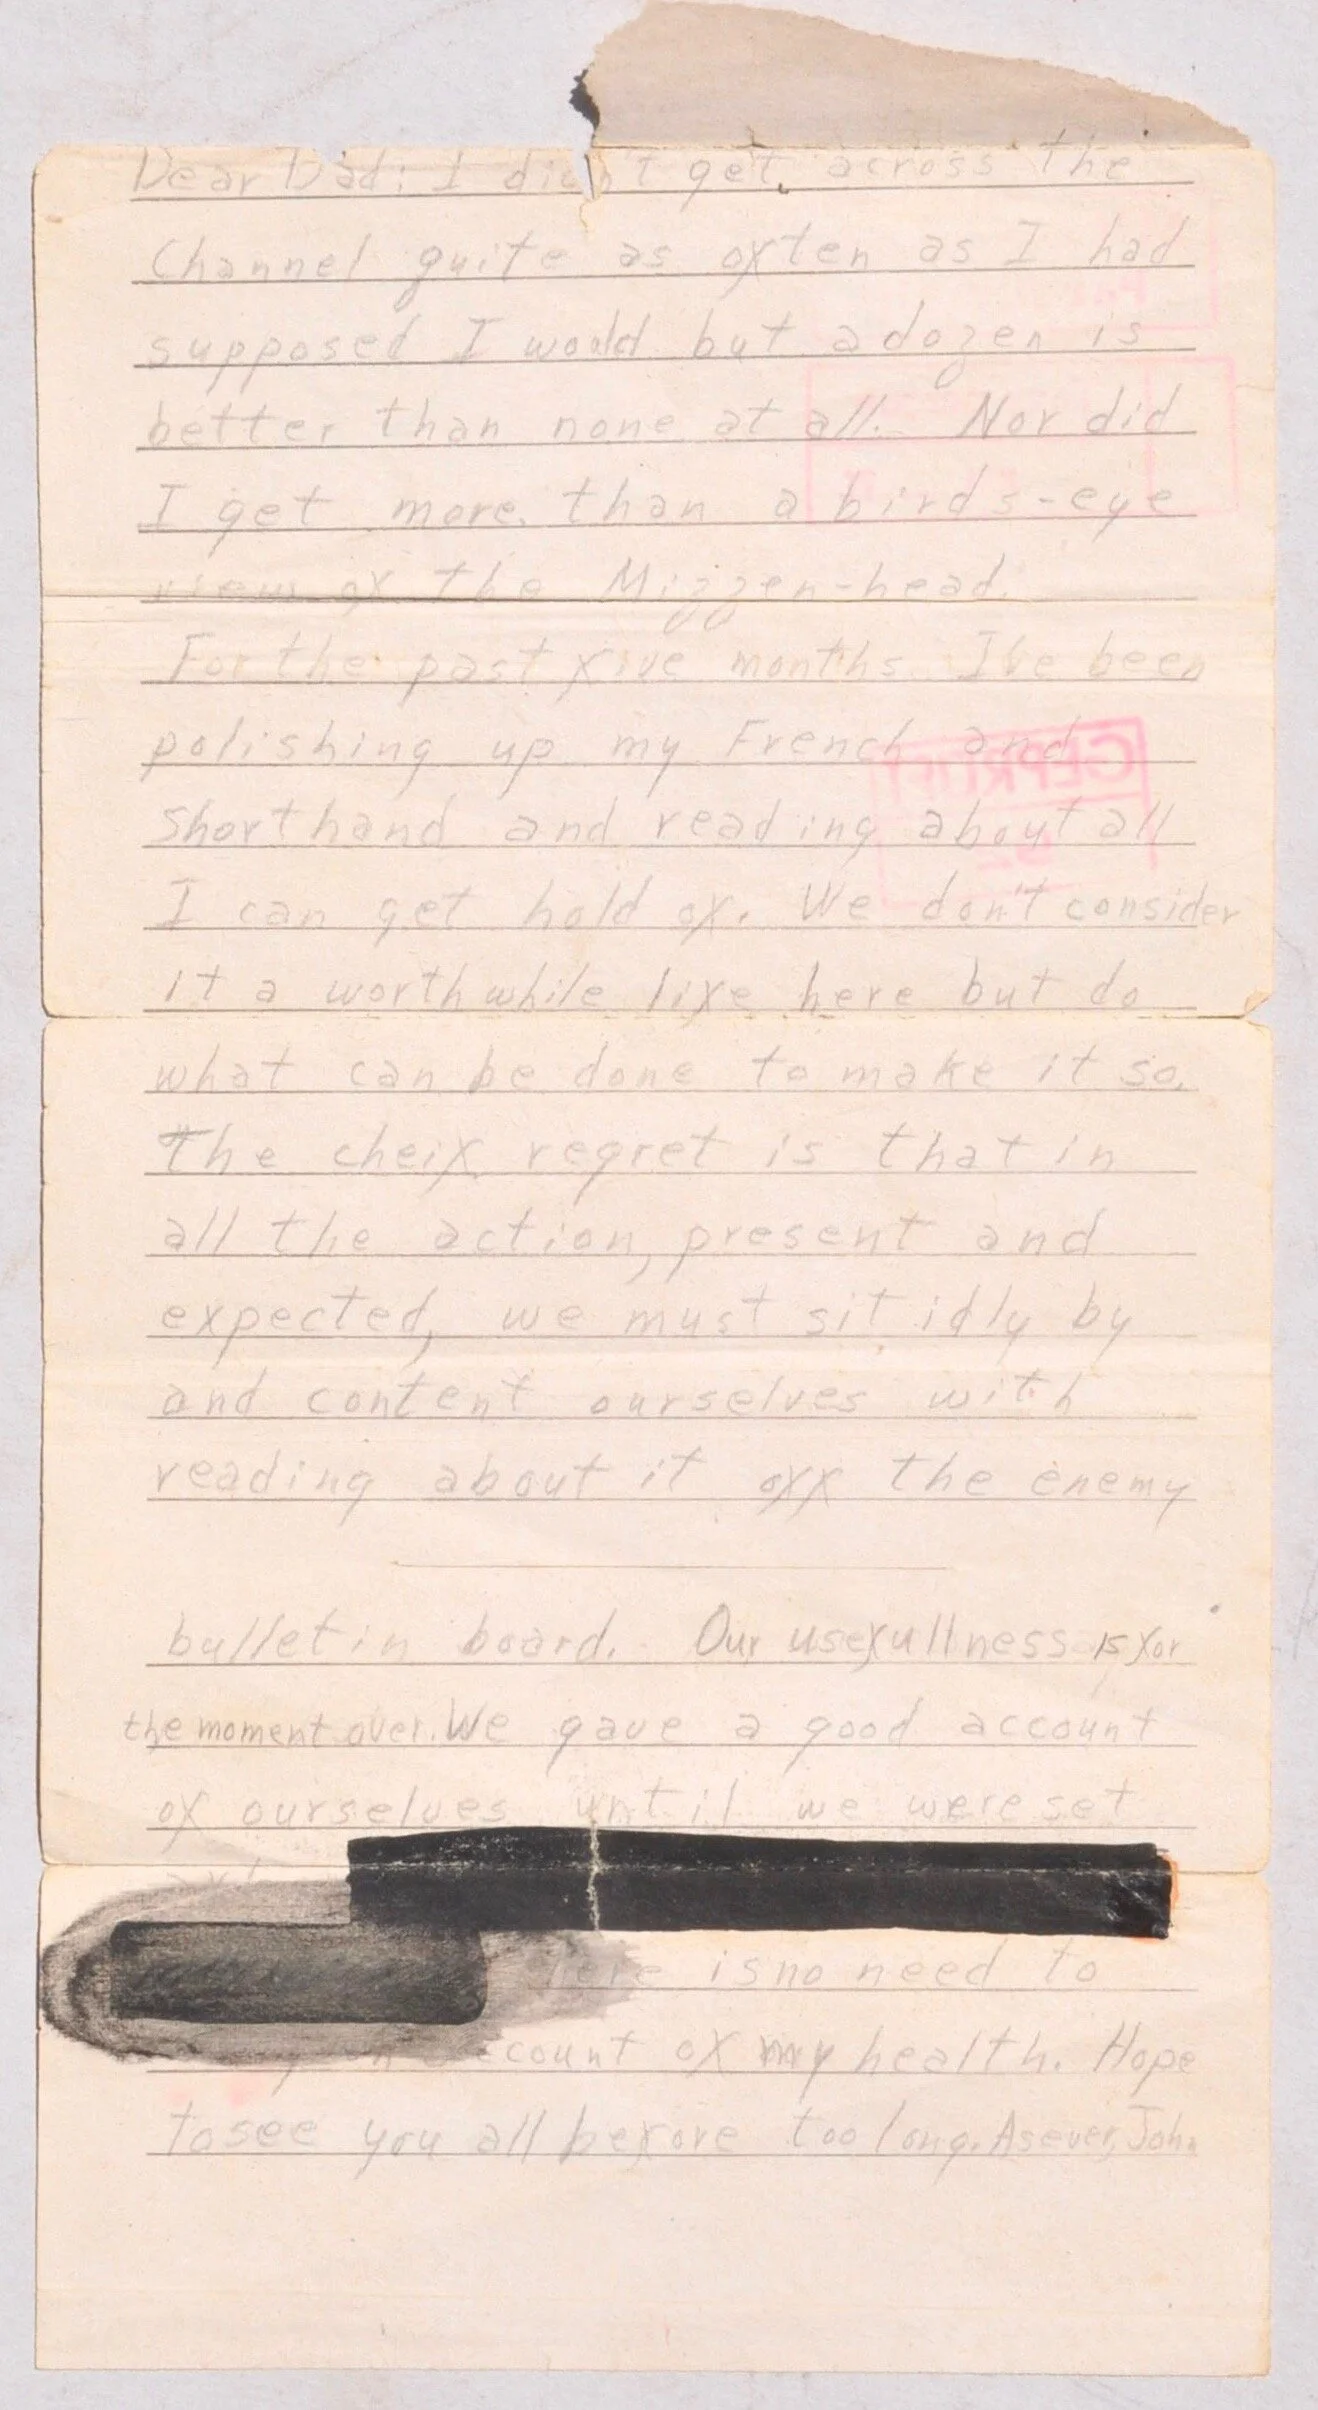 Dear Dad: I didn't get across the
Channel quite as often as I had
supposed I would but a dozen is
better than none at all. Nor did
I get more than a birds-eye
view of the Mizzen-head.
For the past five months I've been
polishing up my French and
shorthand and reading about all
I can get hold of. We don't consider
it a worthwhile life here but do
what can be done to make it so.
The cheif regret is that in
all the action, present and
expected, we must sit idly by
and content ourselves with
reading about it off the enemy
bulletin board. Our usefullness is for
the moment over. We gave a good account
of ourselves until we were set
is no need to
account of my health. Hope
to see you all before too long. As ever, John
GEPRÜFT